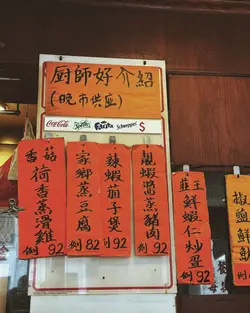 厨師好介紹
(晚市供应)
Coca-Cola
Sprite
Fanta
Schweppes
$
香菇
荷香蒸滑雞
例92
家鄉蒸豆腐
例82
辣蝦茄子煲
例92
靚蝦醬蒸豬肉
例92
韭王
鮮蝦仁炒蛋
例92
椒鹽鮮